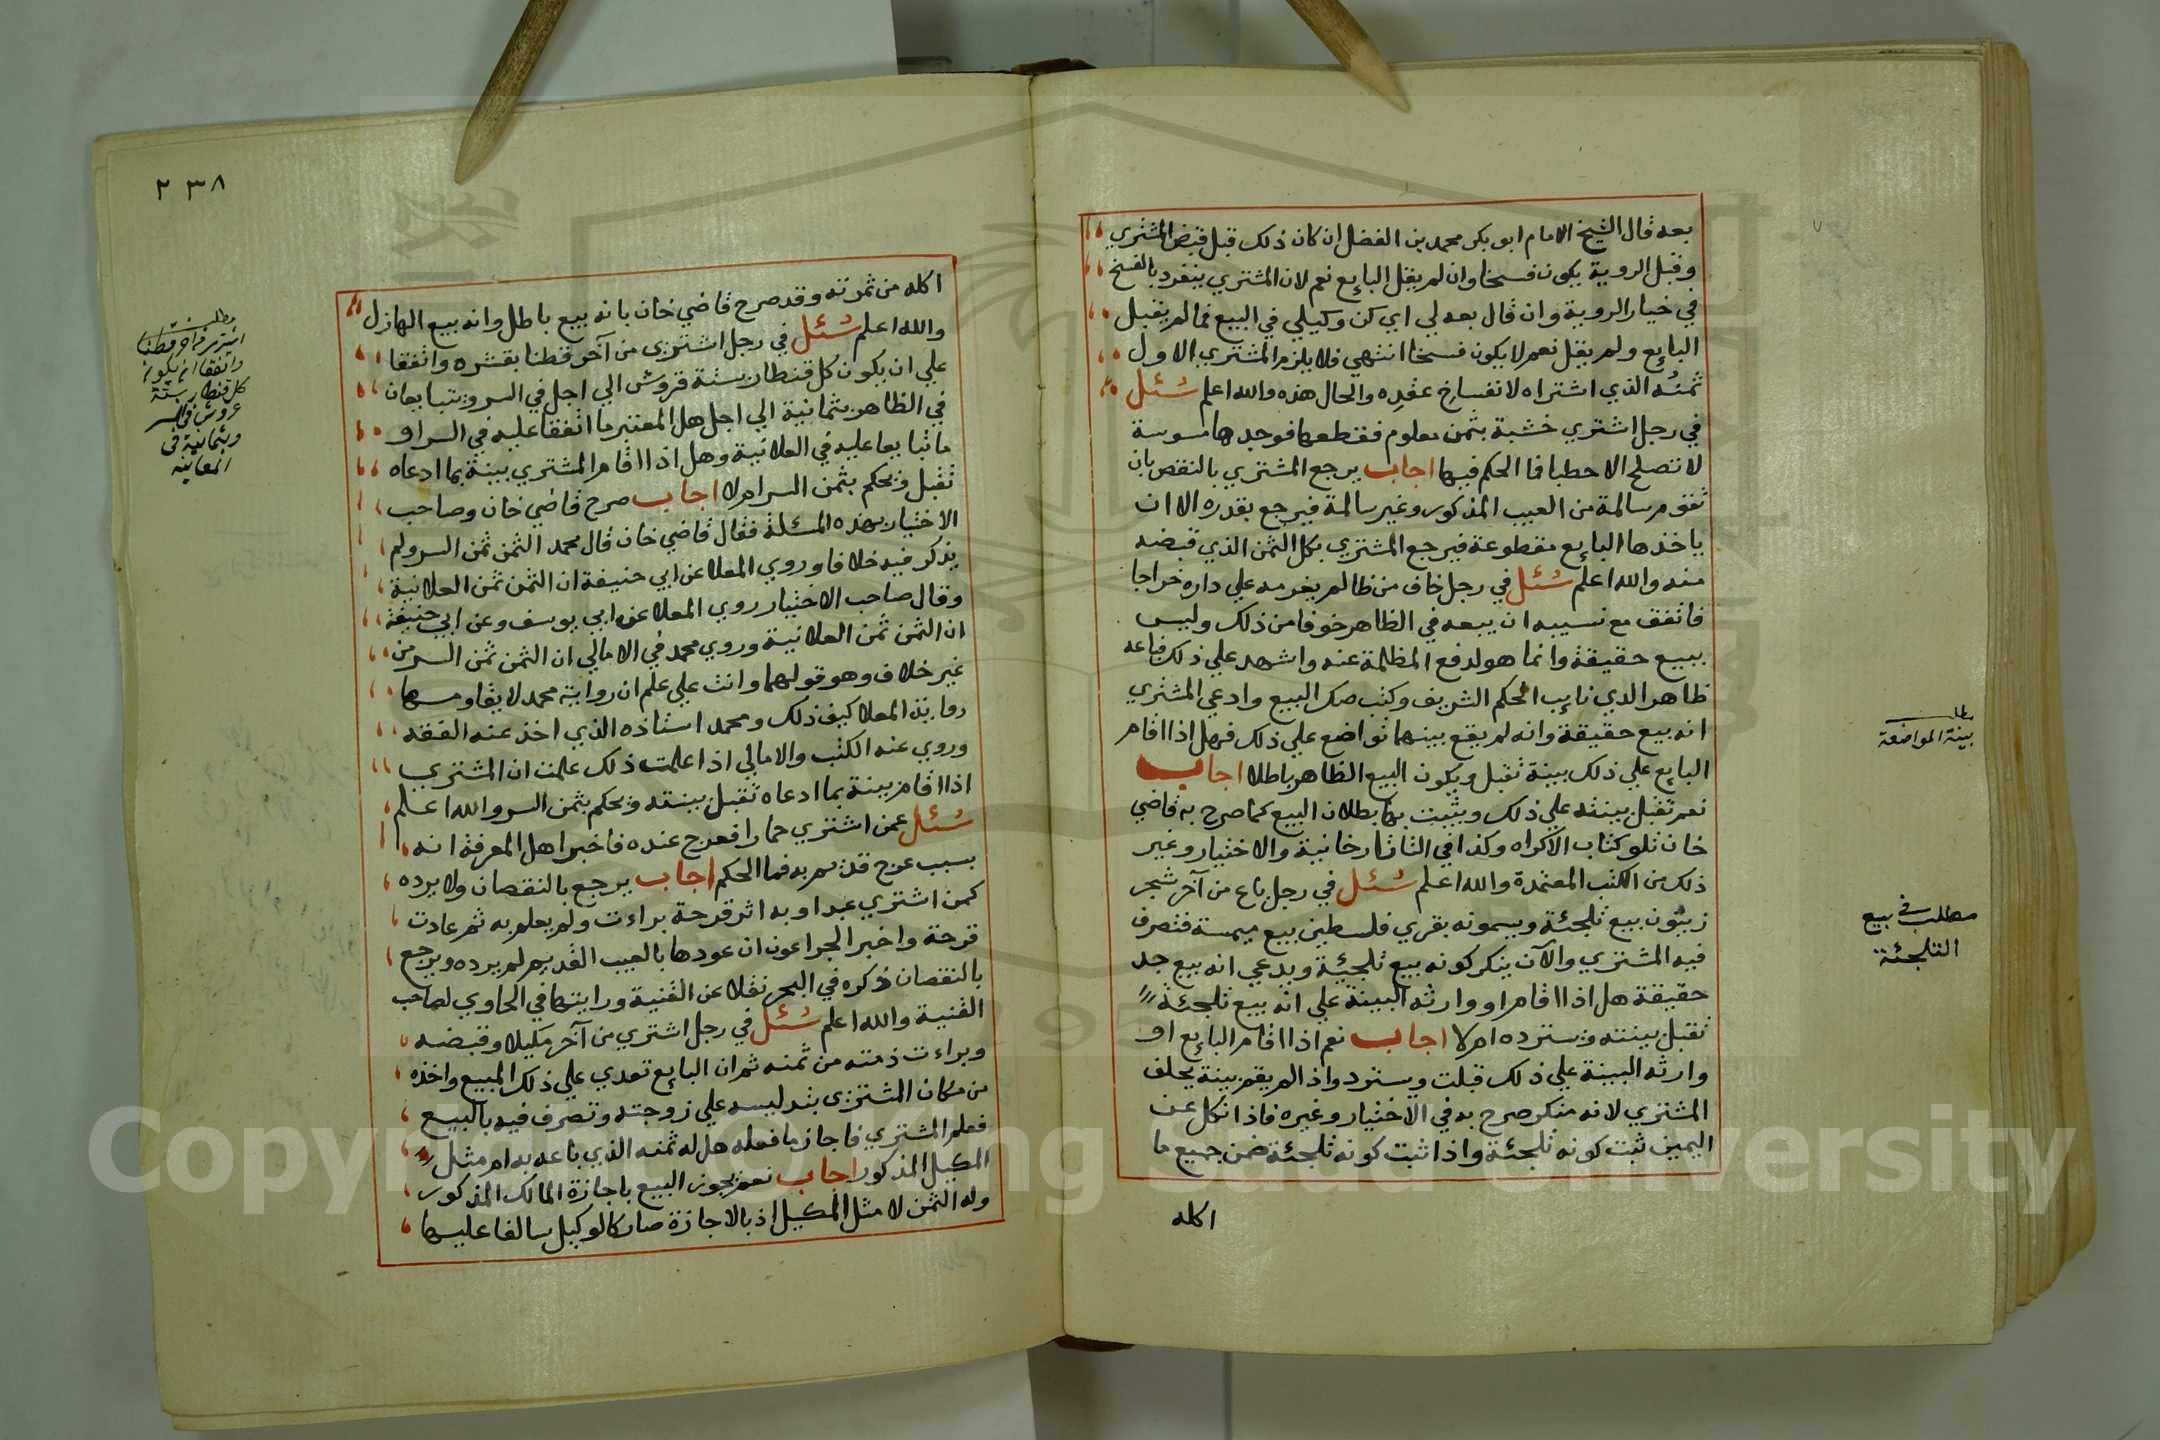 بعه قال الشيخ الامام ابو بكر محمد بن الفضل ان كان ذلك قبل قبض المشتري
وقبل الروية يكون فسخا وان لم يقل البايع نعم لان المشتري ينفرد بالفسخ
في خيار الروية وان قال بعه لي اي كن وكيلي في البيع فما لم يقبل
البايع ولم يقل نعم لا يكون فسخا انتهي فلا يلزم المشتري الاول
ثمنه الذي اشتراه لانفساخ عقده والحال هذه والله اعلم سئل
في رجل اشتري خشبة بثمن معلوم فقطعها فوجدها مسوسة
لا تصلح الا حطبا فما الحكم فيها اجاب يرجع المشتري بالنقص بان
تقوم سالمة من العيب المذكور وغير سالمة فيرجع بقدره الا ان
ياخذها البايع مقطوعة فيرجع المشتري بكل الثمن الذي قبضه
منه والله اعلم سئل في رجل خاف من ظالم يغرمه علي داره خراجا
فاتفق مع نسيبه ان يبعه في الظاهر خوفا من ذلك وليس
ببيع حقيقة وانما هو لدفع المظلمة عنه واشهد علي ذلك فباعه
ظاهرا لدي نايب الحكم الشريف وكتب صك البيع وادعي المشتري
انه بيع حقيقة وانه لم يقع بينهما تواضع علي ذلك فهل اذا اقام
البايع علي ذلك بينة تقبل ويكون البيع الظاهر باطلا اجاب
نعم تقبل بينته علي ذلك ويثبت بها بطلان البيع كما صرح به قاضي
خان تلو كتاب الاكراه وكذا في التاتارخانية والاختيار وغير
ذلك من الكتب المعتمدة والله اعلم سئل في رجل باع من آخر شجر
زيتون بيع تلجئة ويسمونه بقري فلسطين بيع ميمسة فتصرف
فيه المشتري والآن ينكر كونه بيع تلجيئة ويدعي انه بيع جد
حقيقة هل اذا اقام او وارثه البينة علي انه بيع تلجئة
تقبل بينته وتسترده ام لا اجاب نعم اذا اقام البايع او
وارثه البينة علي ذلك قبلت ويسترد واذا لم يقم بينة يحلف
المشتري لانه منكر صرح به في الاختيار وغيره فاذا نكل عن
اليمين ثبت كونه تلجئة واذا ثبت كونه تلجئة ضمن جميع ما
اكله
مطلب
بينة المواضعة
مطلب في بيع
التلجئة
٢٣٨
اكله من ثمرته وقد صرح قاضي خان بانه بيع باطل وانه بيع الهازل
والله اعلم سئل في رجل اشتري من آخر قطنا بقشره واتفقا
علي ان يكون كل قنطار بستة قروش الي اجل في السر ويتبايعان
في الظاهر بثمانية الي اجل هل المعتبر ما اتفقا عليه في السر او
ما تبايعا عليه في العلانية وهل اذا اقام المشتري بينة بما ادعاه
تقبل ويحكم بثمن السر ام لا اجاب صرح قاضي خان وصاحب
الاختيار بهذه المسئلة فقال قاضي خان قال محمد الثمن ثمن السر ولم
يذكر فيه خلافا وروي المعلا عن ابي حنيفة ان الثمن ثمن العلانية
وقال صاحب الاختيار روي المعلا عن ابي يوسف وعن ابي حنيفة
ان الثمن ثمن العلانية وروي محمد في الامالي ان الثمن ثمن السر من
غير خلاف وهو قولهما وانت علي علم ان رواية محمد لا يقاومها
رواية المعلا كيف ذلك ومحمد استاذه الذي اخذ عنه الفقه
وروي عنه الكتب والامالي اذا علمت ذلك علمت ان المشتري
اذا اقام بينة بما ادعاه تقبل بينته ويحكم بثمن السر والله اعلم
سئل عمن اشتري حمارا فعرج عنده فاخبر اهل المعرفة انه
بسبب عرج قديم به فما الحكم اجاب يرجع بالنقصان ولا يرده
كمن اشتري عبدا وبه اثر قرحة براءت ولم يعلم به ثم عادت
قرحة واخبر الجراعون ان عودها بالعيب القديم لم يرده ويرجع
بالنقصان ذكره في البحر نقلا عن القنية ورايتها في الحاوي لصاحب
القنية والله اعلم سئل في رجل اشتري من آخر مكيلا وقبضه
وبراءت ذمته من ثمنه ثم ان البايع تعدي علي ذلك المبيع واخذه
من مكان المشتري بتدليسه علي زوجته وتصرف فيه بالبيع
فعلم المشتري فاجاز ما فعله هل له ثمنه الذي باعه به ام مثل
المكيل المذكور اجاب نعم يجوز البيع باجازة المالك المذكور
وله الثمن لا مثل المكيل اذ بالاجازة صار كالوكيل سالفا عليها
مطلب
اشتري من آخر قطنا
واتفقا ان يكون
كل قنطار بستة
قروش في السر
وبثمانية في
المعاينه
Copyright © King Saud University